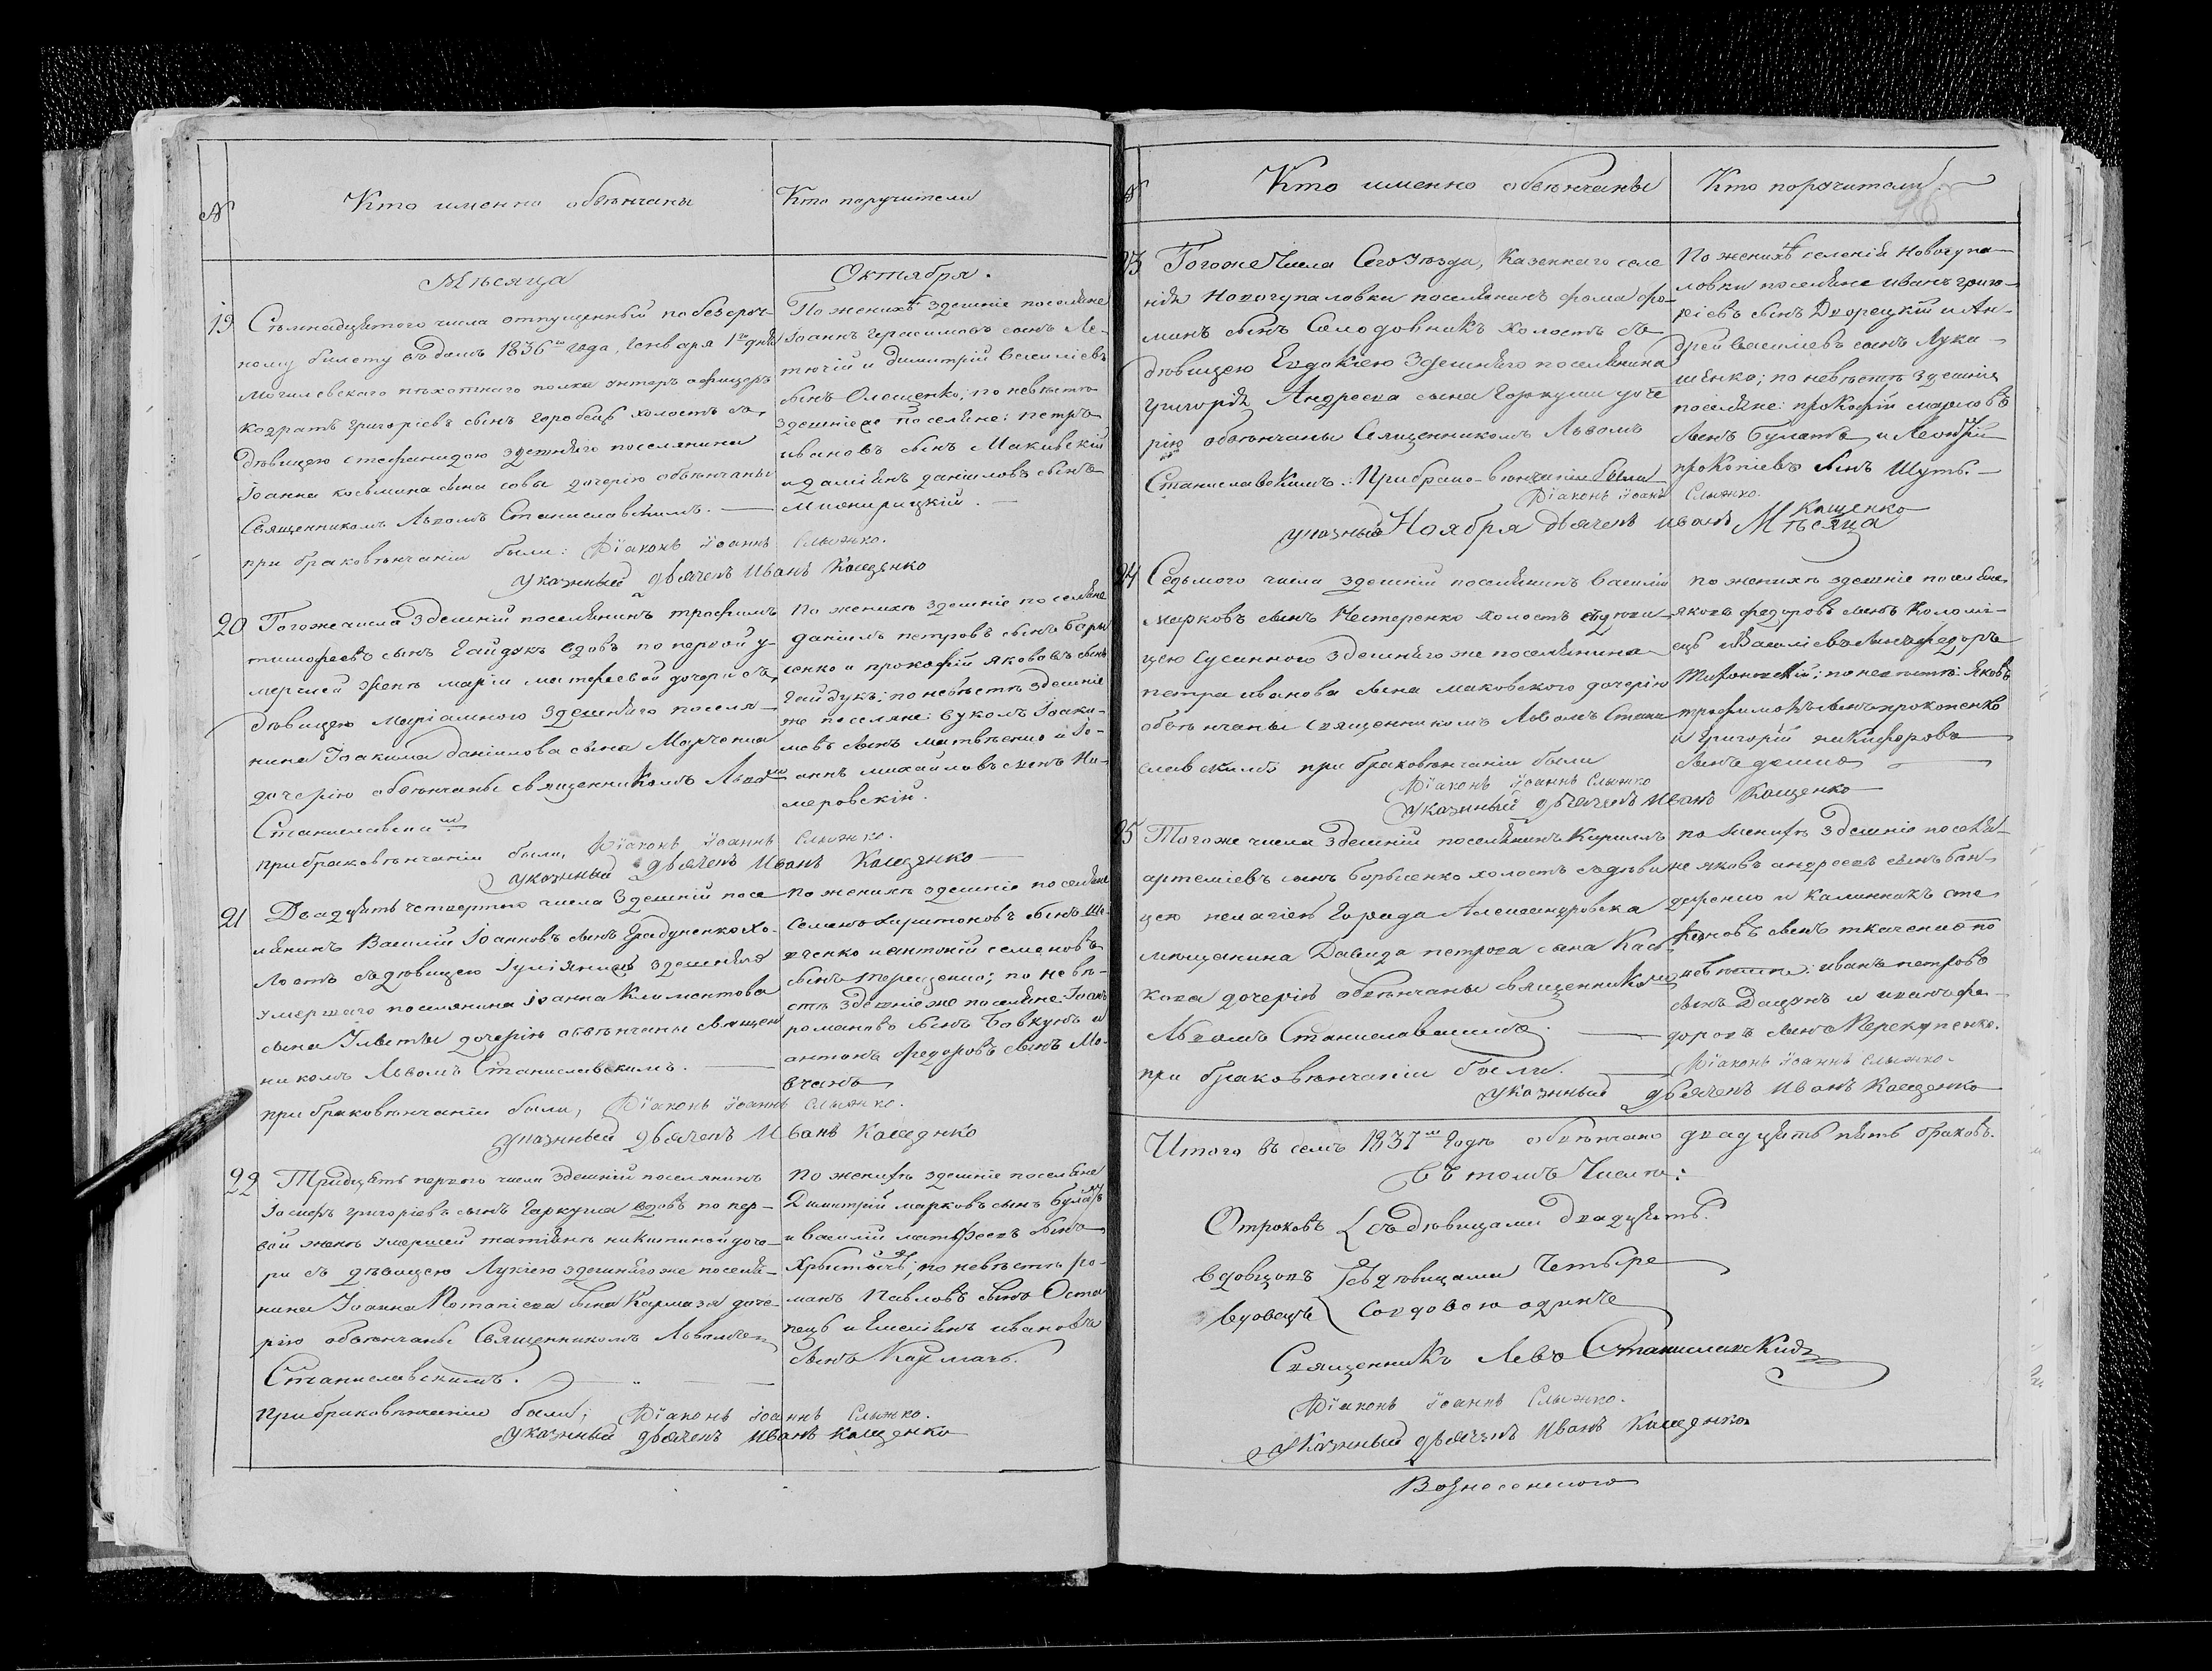 №
Кто именно обвѣнчаны
Кто поручители
Мѣсяца
Октября.
19
Семнадцятого числа отпущенный по безсроч-
ному билету въ домъ 1836го года, Генваря 1го дня
Могилевского пѣхотнаго полка унтеръ офицеръ
Кодратъ Григоріевъ сынъ Горобецъ холостъ съ
дѣвицею Стефанидою здешняго поселянина
Іоанна Косьмина сына Совы дочерію обвѣнчаны
Священникомъ Львомъ Станиславскимъ.
при браковѣнчаніи были: Діаконъ Іоаннъ Слыжко.
указный дьячекъ Иванъ Кащенко
По женихѣ здешніе поселяне
Іоаннъ Герасимовъ сынъ Ле-
тючій и Димитрій Василіевъ
сынъ Олещенко; по невѣстѣ
здешніе же поселяне: Петръ
Ивановъ сынъ Макивскій
и Даміянъ Даніиловъ сынъ
20
Тогоже числа Здешній поселянинъ Трофимъ
Тимофеевъ сынъ Гайдукъ вдовъ по первой у-
мершей женѣ Маріи Матфеевой дочери съ
дѣвицею Маріамною Здешняго поселя-
нина Іоакима Даніилова сына Марченка
дочерію обвѣнчаны священникомъ Львомъ
Станиславскимъ
при браковѣнчаніи были, Діаконъ Іоаннъ Слыжко.
указный дьячекъ Иванъ Кащенко
По женихѣ здешніе поселяне
Даніилъ Петровъ сынъ Бори
сенко и Прокофій Яковлевъ сынъ
Гайдукъ; по невѣстѣ здешніе
же поселяне: Вуколъ Іоаки-
мовъ сынъ Матвѣенко и Іо-
аннъ Михайловъ сынъ Не-
меровскій.
21
Двадцять четвертого числа Здешній посе
лянинъ Василій Іоанновъ сынъ Грабуненко хо-
лостъ съ дѣвицею Іуліяниею здешняго
умершаго поселянина Іоанна Климентова
сына дочерію обвѣнчаны священ
никомъ Львомъ Станиславскимъ.
при браковѣнчаніи были, Діаконъ Іоаннъ Слыжко.
указный дьячекъ Иванъ Кащенко
По женихѣ здешніе поселяне
Семенъ Харитоновъ сынъ Ше-
вченко и Антоній Семеновъ
сынъ Терещенко; по невѣ-
стѣ здешніе же поселяне: Іоанъ
Романовъ сынъ Бовкунъ и
Антонъ Федоровъ сынъ Мо-
вчанъ
22
Тридцять первого числа здешній поселянинъ
Іосифъ Григоріевъ сынъ Гаркуша вдовъ по пер-
вой женѣ умершей Татіянѣ Никитиной доче-
ри съ дѣвицею Лукіею здешняго же поселя-
нина Іоанна Потапіева сына Кармазя доче-
рію обвѣнчаны Священникомъ Львомъ
Станиславскимъ.
При браковѣнчаніи были; Діаконъ Іоаннъ Слыжко.
указный дьячекъ Иванъ Кащенко
По женихѣ здешніе поселяне
Димитрій Марковъ сынъ Булатъ
и Василій Матфеевъ сынъ
по невѣстѣ Ро-
манъ Павловъ сынъ Оста
пецъ и Емеліянъ Ивановъ
сынъ
№
Кто именно обвѣнчаны
Кто поручители
23
Тогоже Числа Сего Уѣзда, Казеннаго селе
нія Новогупаловки поселянинъ Фома Фо-
минъ сынъ Солодовникъ холостъ съ
дѣвицею Евдокіею Здешняго поселянина
Григорія Андреева сына Гаркуши доче
рію обвѣнчаны Священникомъ Львомъ
Станиславскимъ. При брако-вѣнчаніи были
Діаконъ Іоаннъ Слыжко.
указный дьячекъ Иванъ Кащенко
По женихѣ селенія Новогупа-
ловки поселяне Иванъ Григо-
ріевъ сынъ Дворецкій и Ан-
дрей Василіевъ сынъ Лука-
шенко; по невѣстѣ здешніе
поселяне: Прокофій Марковъ
сынъ Булатъ и Леонтій
Прокопіевъ сынъ Шутъ.
Ноября Мѣсяца
24
Седьмого числа здешній поселянинъ Василій
Марковъ сынъ Нестеренко холостъ съ дѣви-
цею Сусанною здешняго же поселянина
Петра Иванова сына Маковского дочерію
обвѣнчаны священникомъ Львомъ Стани
славскимъ при браковѣнчаніи были
Діаконъ Іоаннъ Слыжко
Указный дьячекъ Иванъ Кащенко
по женихѣ здешніе поселяне
Яковъ Федоровъ сынъ Коломі-
ецъ и Василіевъ сынъ Федоръ
по невѣстѣ: Яковъ
Трофимовъ сынъ Прокопенко
и Григорій Никифоровъ
сынъ
25
Тогоже числа Здешній поселянинъ Кириллъ
Артеміевъ сынъ Борысенко холостъ съ дѣви
цею Пелагіею Города Александровска
мещанина Давида Петрова сына
кова дочерію обвѣнчаны священникомъ
Львомъ Станиславскимъ.
при браковѣнчаніи были.
Діаконъ Іоаннъ Слыжко.
указный дьячекъ Иванъ Кащенко
по женихѣ здешніе поселя-
не Яковъ Андреевъ сынъ Бон
даренко и Калинникъ Сте
фановъ сынъ Ткаченко по
невѣстѣ: Иванъ Петровъ
сынъ Дацунъ и Иванъ Фе-
доровъ сынъ Перекупенко.
Итого въ семъ 1837мъ Годѣ обвѣнчано двадцять пять браковъ.
Въ томъ Числѣ:
Отроковъ съ дѣвицами двадцять.
Вдовцовъ съ дѣвицами Четыре
Вдовецъ со вдовою одинъ
Священникъ Левъ Станиславскій
Діаконъ Іоаннъ Слыжко.
Указный дьячекъ Иванъ Кащенко
Вознесенского